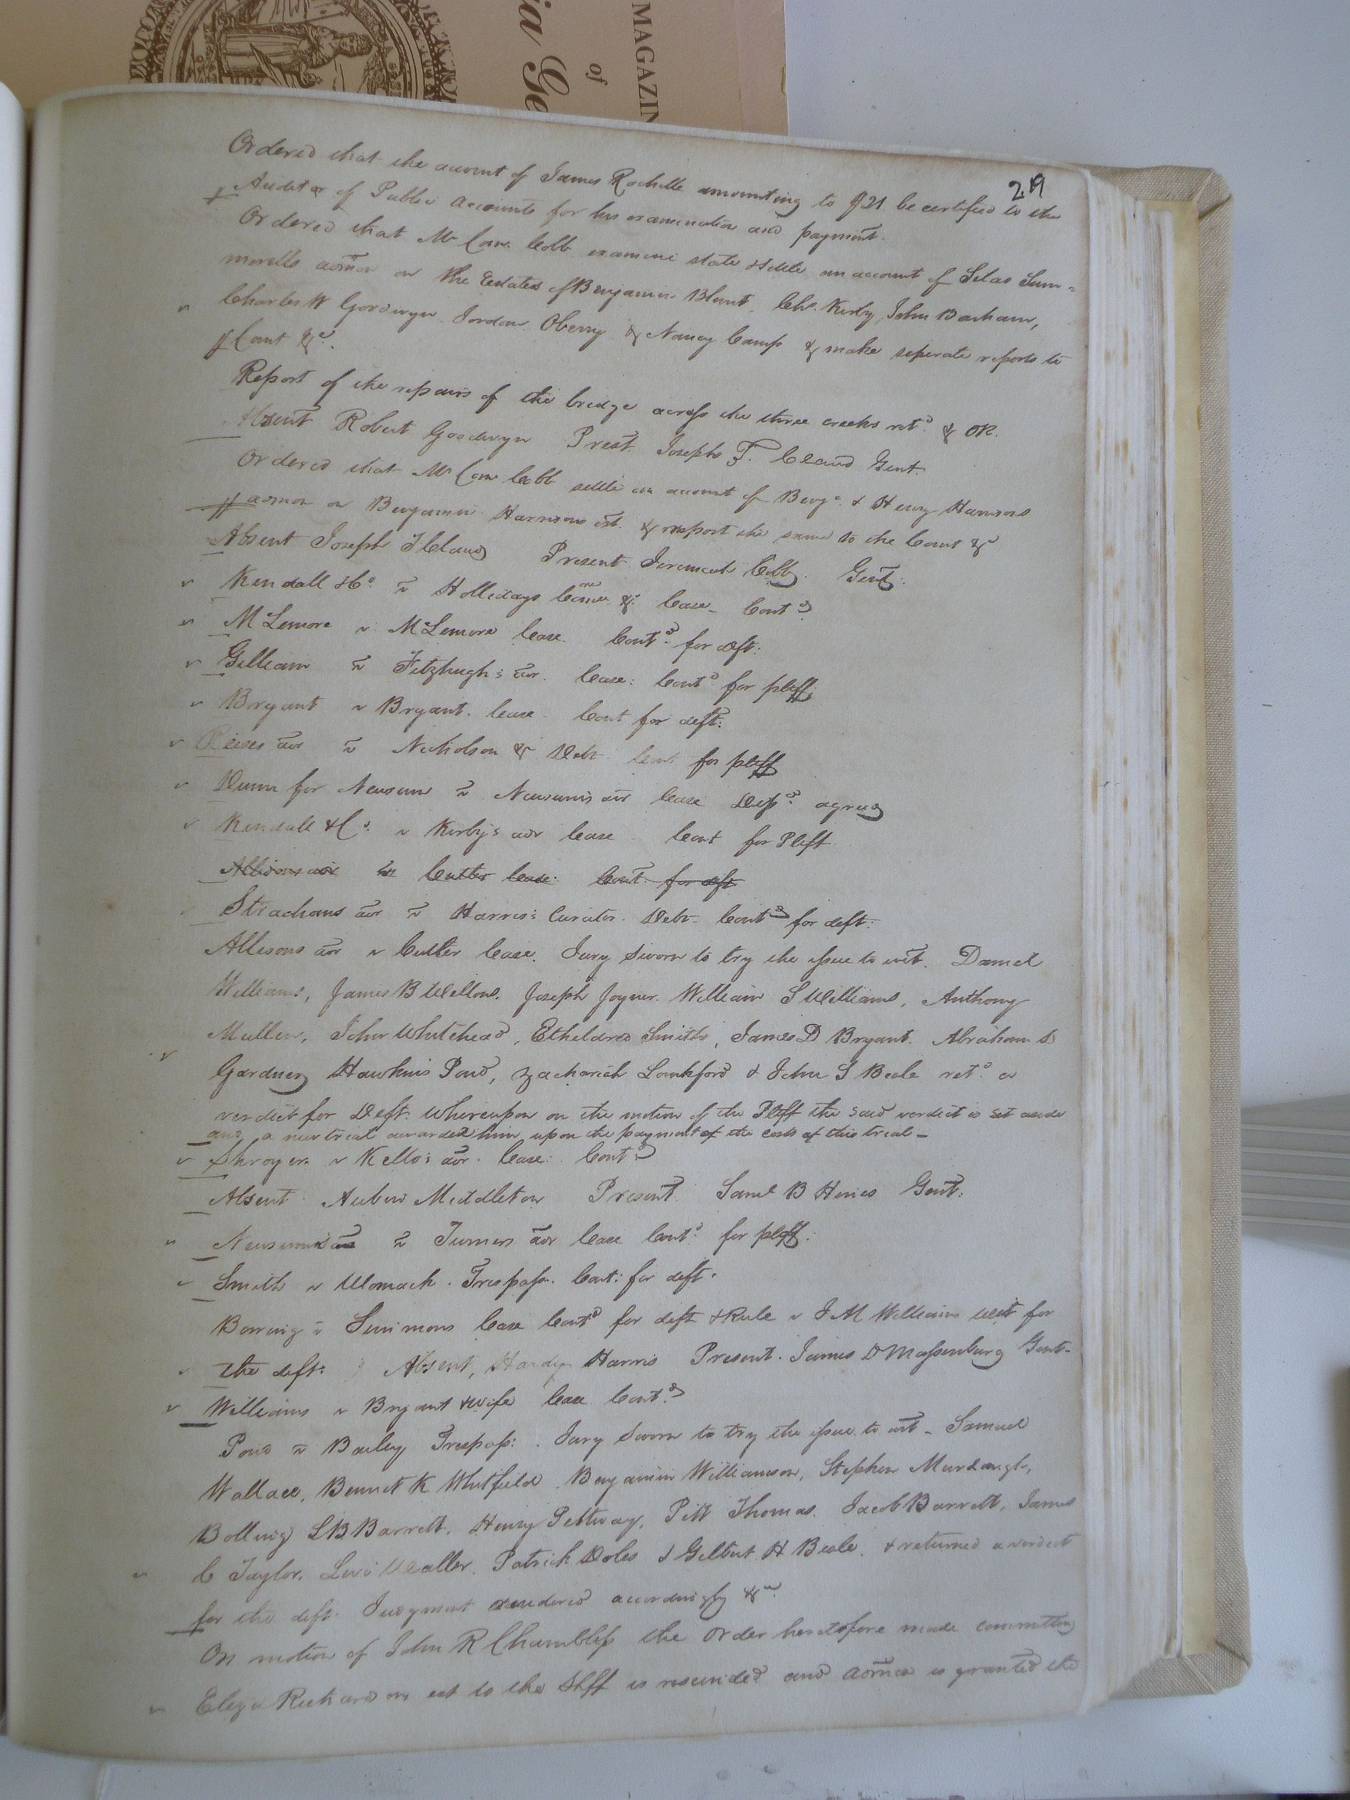 MAGAZIN
of
ia Ge
219
Ordered that the account of James Rochelle amounting to $21 be certified to the
Auditor of Public Accounts for his examination and payment.
Ordered that Mr Carr. Cobb examine state & settle an account of Silas Sum=
merells admon on the Estates of Benjamin Blunt, Chs. Kirby, John Barham,
Charles W Goodwyn. Jordan Oberry & Nancy Camp & make seperate reports to
Court &c.
Report of the repairs of the bridge across the three creeks retd & OR.
Absent Robert Goodwyn Prest. Joseph T. Claud Gent.
Ordered that Mr Carr Cobb settle an account of Benja & Henry Harrisons
admon on Benjamin Harrisons est. & report the same to the Court &c
Absent Joseph T Claud Present Jeremiah Cobb. Gent:
Kendall & Co. vs Hollidays &c. Case. Contd
McLemore v McLemore Case. Contd for deft:
Gilliam vs Fitzhugh's exor. Case: Contd for plff:
Bryant v Bryant. Case. Cont for deft:
exor vs Nicholson & Debt Cont for plff
Dunn for Newsum vs Newsum's exor Case Dissd agreed
Kendall & Co. v Kirby's adr Case Cont for Plff
Allisons exor vs Cutler Case: Cont for deft
Strachans exor vs Harris's Curator. Debt. Contd for deft:
Allisons exor v Cutler Case. Jury Sworn to try the issue to wit. Daniel
Williams, James B Wellons. Joseph Joyner. William S Williams, Anthony
Mullen, John Whitehead, Etheldred Smith, James D Bryant. Abraham S
Gardner, Hawkins Pond, Zachariah Lankford & John S Beale retd a
verdict for Deft. Whereupon on the motion of the Plff the said verdict is set aside
and a new trial awarded him upon the payment of the costs of this trial -
Shroyer v Kello's exor. Case: Contd
Absent Middleton Present Saml B Hines Gent:
Newsum's vs Turners exor Case Contd for plff:
Smith v Womack. Trespass. Cont: for deft.
Boning vs Simmons Case Contd for deft & Rule v J M Williams for
the deft: Absent, Hardy Harris Present. James D Massenburg Gent-
Williams v Bryant & wife Case Contd
Pond vs Bailey Trespass: Jury Sworn to try the issue to wit - Samuel
Wallace, Bennet K Whitfield. Benjamin Williamson, Stephen Murdaugh,
Bolling LB Barrett, Henry Pettway, Pitt Thomas. Jacob Barrett, James
C Taylor, Levi Waller. Patrick Doles & Gilbert H Beale. & returned a verdict
for the deft. Judgment rendered accordingly &c.
On motion of John R Chambliss the order heretofore made committing
Eliza Richardson est to the Shff is rescinded and admon is granted the